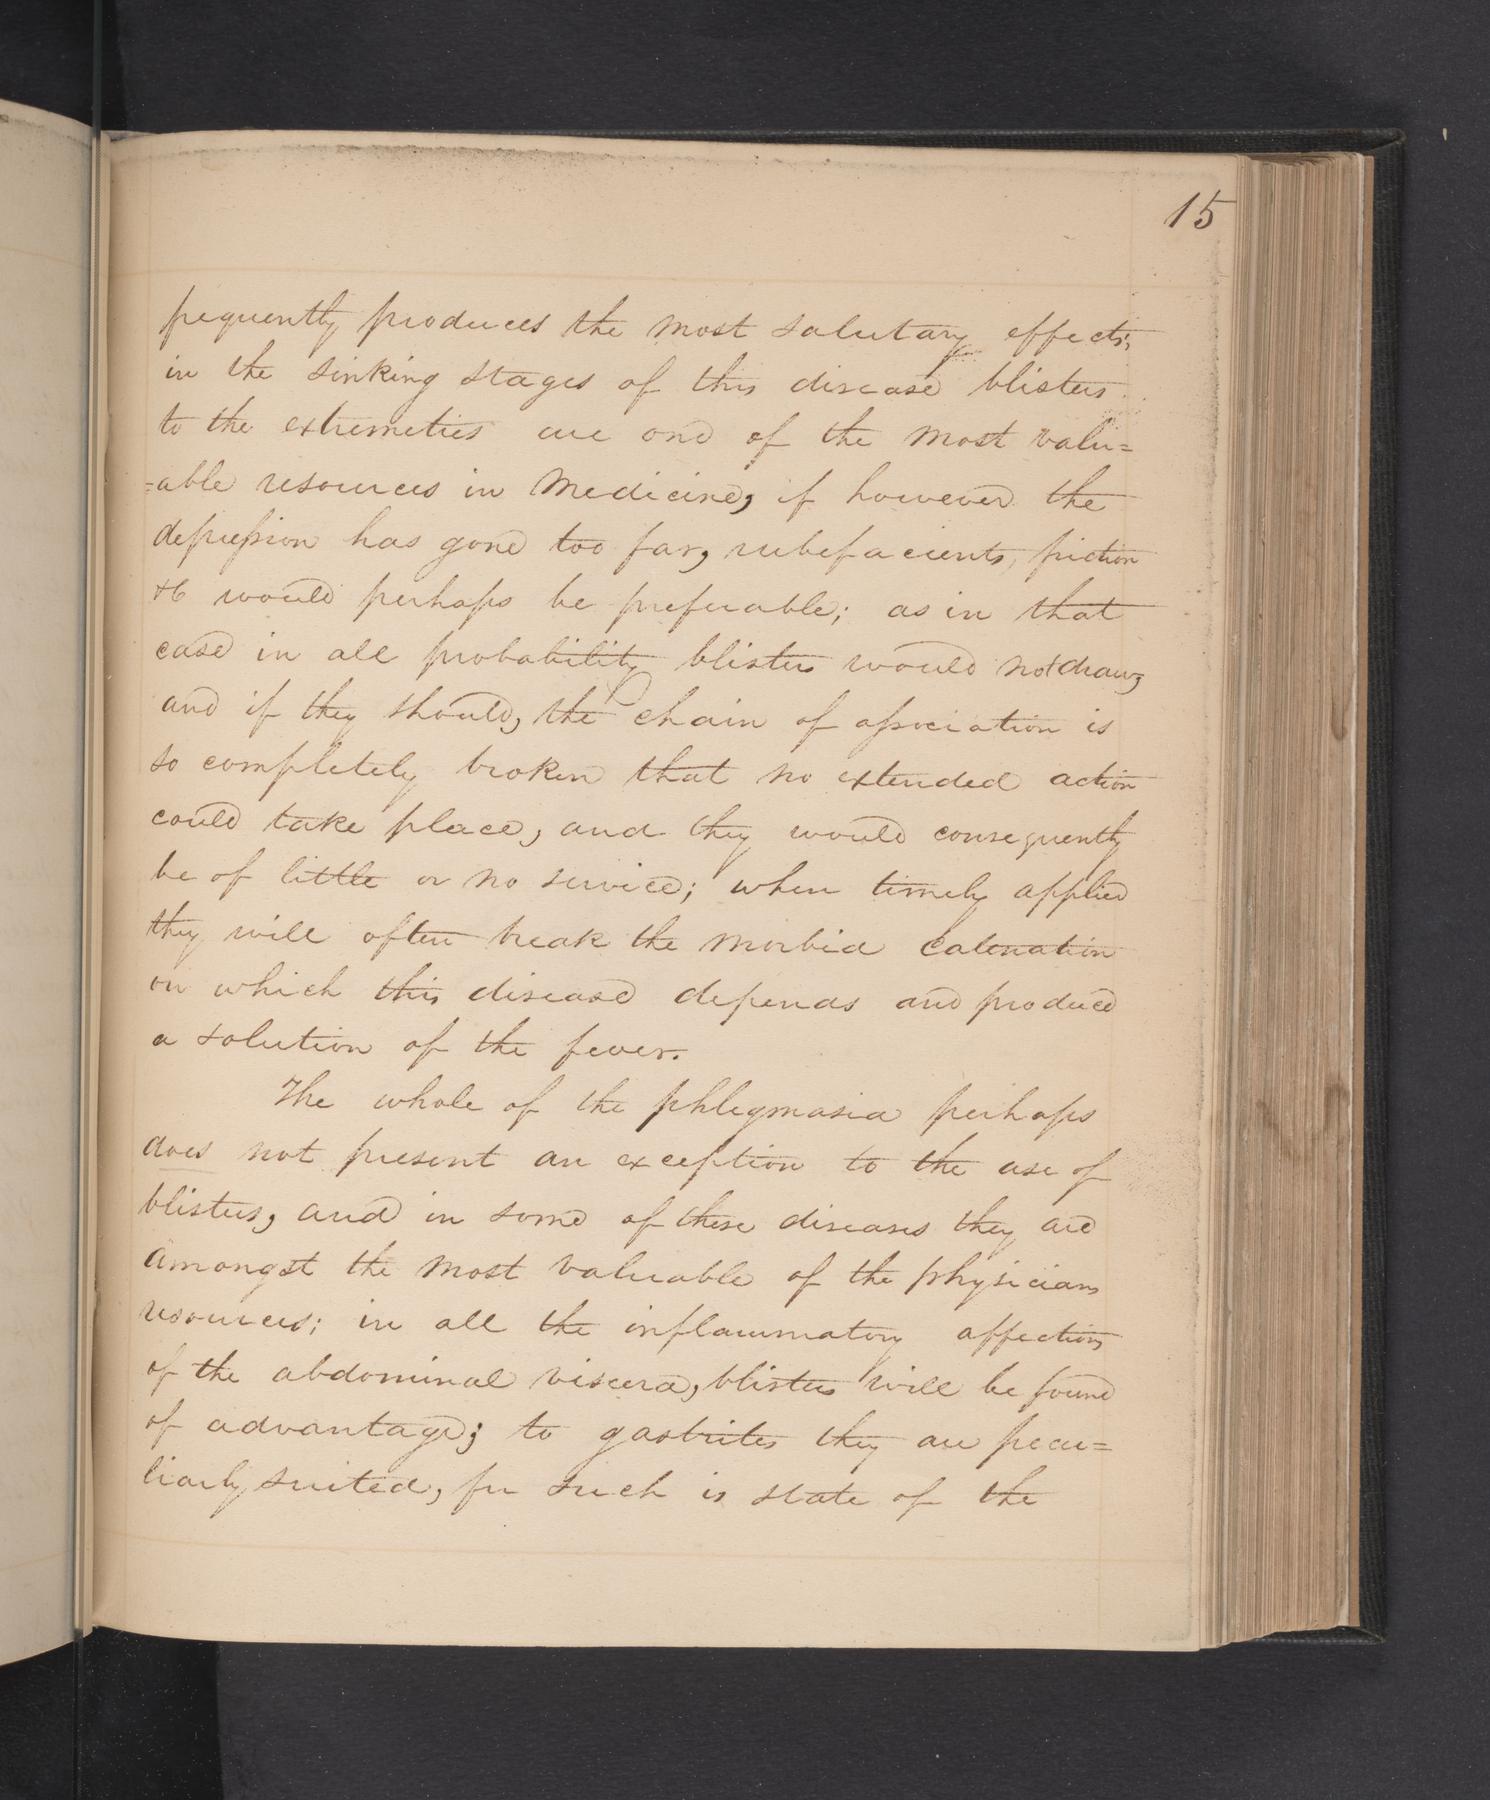 15
frequently produces the most salutary effects;
in the sinking stages of this disease blisters
to the extremeties are one of the most valu=
=able resources in Medicine, if however the
depression has gone too far, rubefacients, friction
&c would perhaps be preferable; as in that
case in all probability blisters would not draw,
and if they should, the chain of association is
so completely broken that no extended action
could take place, and they would consequently
be of little or no service; when timely applied
they will often break the morbid Catenation
on which this disease depends and produce
a solution of the fever.
The whole of the phlegmasia perhaps
does not present an exception to the use of
blisters, and in some of these diseases they are
amongst the most valuable of the physicians
resources; in all the inflammatory affections
of the abdominal viscera, blisters will be found
of advantage; to gastrites they are pecu=
liarly suited, for such is state of the